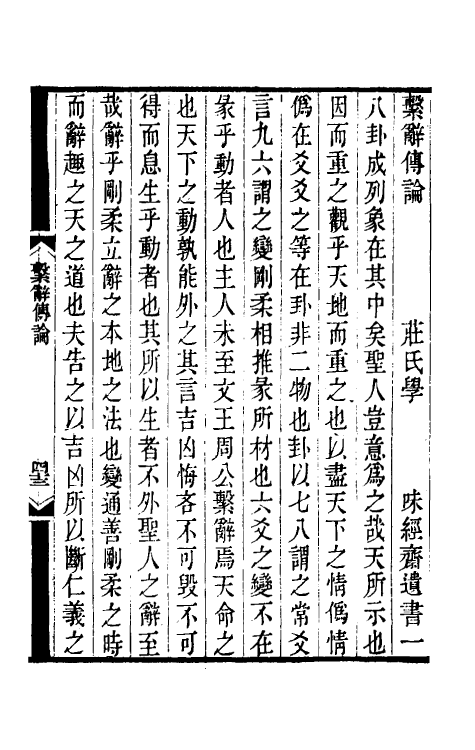 繫辭傳論　莊氏學　味經齋遺書一
八卦成列象在其中矣聖人豈意爲之哉天所示也
因而重之觀乎天地而重之也以盡天下之情僞情
僞在爻爻之等在卦非二物也卦以七八謂之常爻
言九六謂之變剛柔相推彖所材也六爻之變不在
彖乎動者人也主人未至文王周公繫辭焉天命之
也天下之動孰能外之其言吉凶悔吝不可毀不可
得而息生乎動者也其所以生者不外聖人之辭至
哉辭乎剛柔立辭之本地之法也變通善剛柔之時
而辭趣之天之道也夫告之以吉凶所以斷仁義之
繫辭傳論